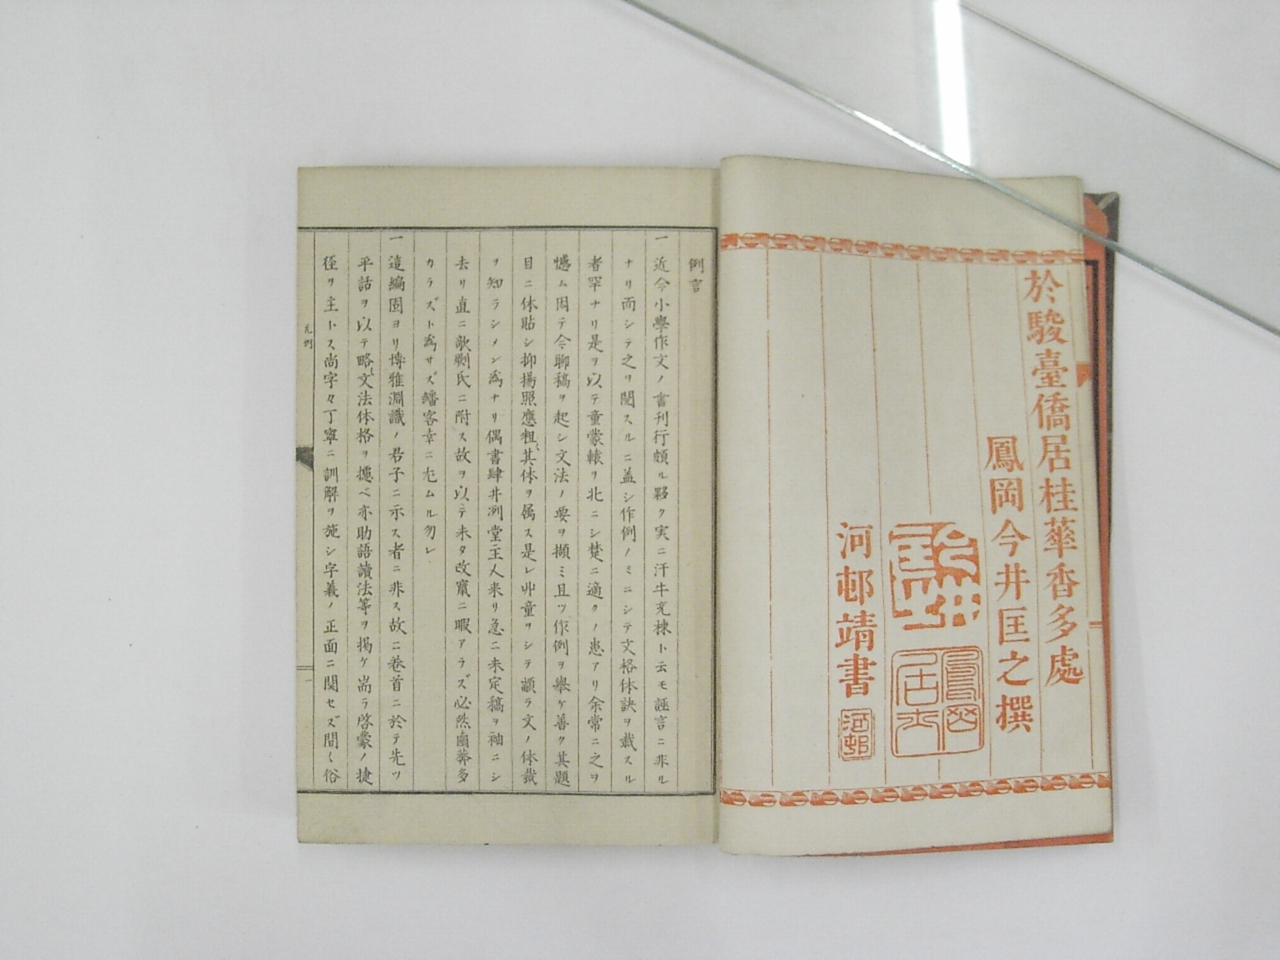 於駿臺僑居桂華香多處
鳳岡今井匡之撰
河邨靖書
河邨
例言
一近今小學作文ノ書刊行頗ル夥ク実ニ汗牛充棟ト云モ誣言ニ非ル
ナリ而シテ之ヲ閲スルニ盖シ作例ノミニシテ文格体訣ヲ載スル
者罕ナリ是ヲ以テ童蒙轅ヲ北ニシ楚ニ適クノ患アリ余常ニ之ヲ
憾ム因テ今聊稿ヲ起シ文法ノ要ヲ擷ミ且ツ作例ヲ擧ケ善ク其題
目ニ体貼シ抑揚照應粗其体ヲ属ス是レ丱童ヲシテ頗ラ文ノ体裁
ヲ知ラシメン為ナリ偶書肆井洌堂主人来リ急ニ未定稿ヲ袖ニシ
去リ直ニ剞劂氏ニ附ス故ヲ以テ未タ改竄ニ暇アラズ必然鹵莽多
カラズト為サズ繙客幸ニ尤ムル勿レ
一這編固ヨリ博雅淵識ノ君子ニ示ス者ニ非ス故ニ巻首ニ於テ先ツ
平話ヲ以テ略文法体格ヲ攄ベ亦助語讀法等ヲ掲ケ耑ラ啓蒙ノ捷
径ヲ主トス尚字々丁寧ニ訓解ヲ施シ字義ノ正面ニ関セズ間〱俗
凡例
一